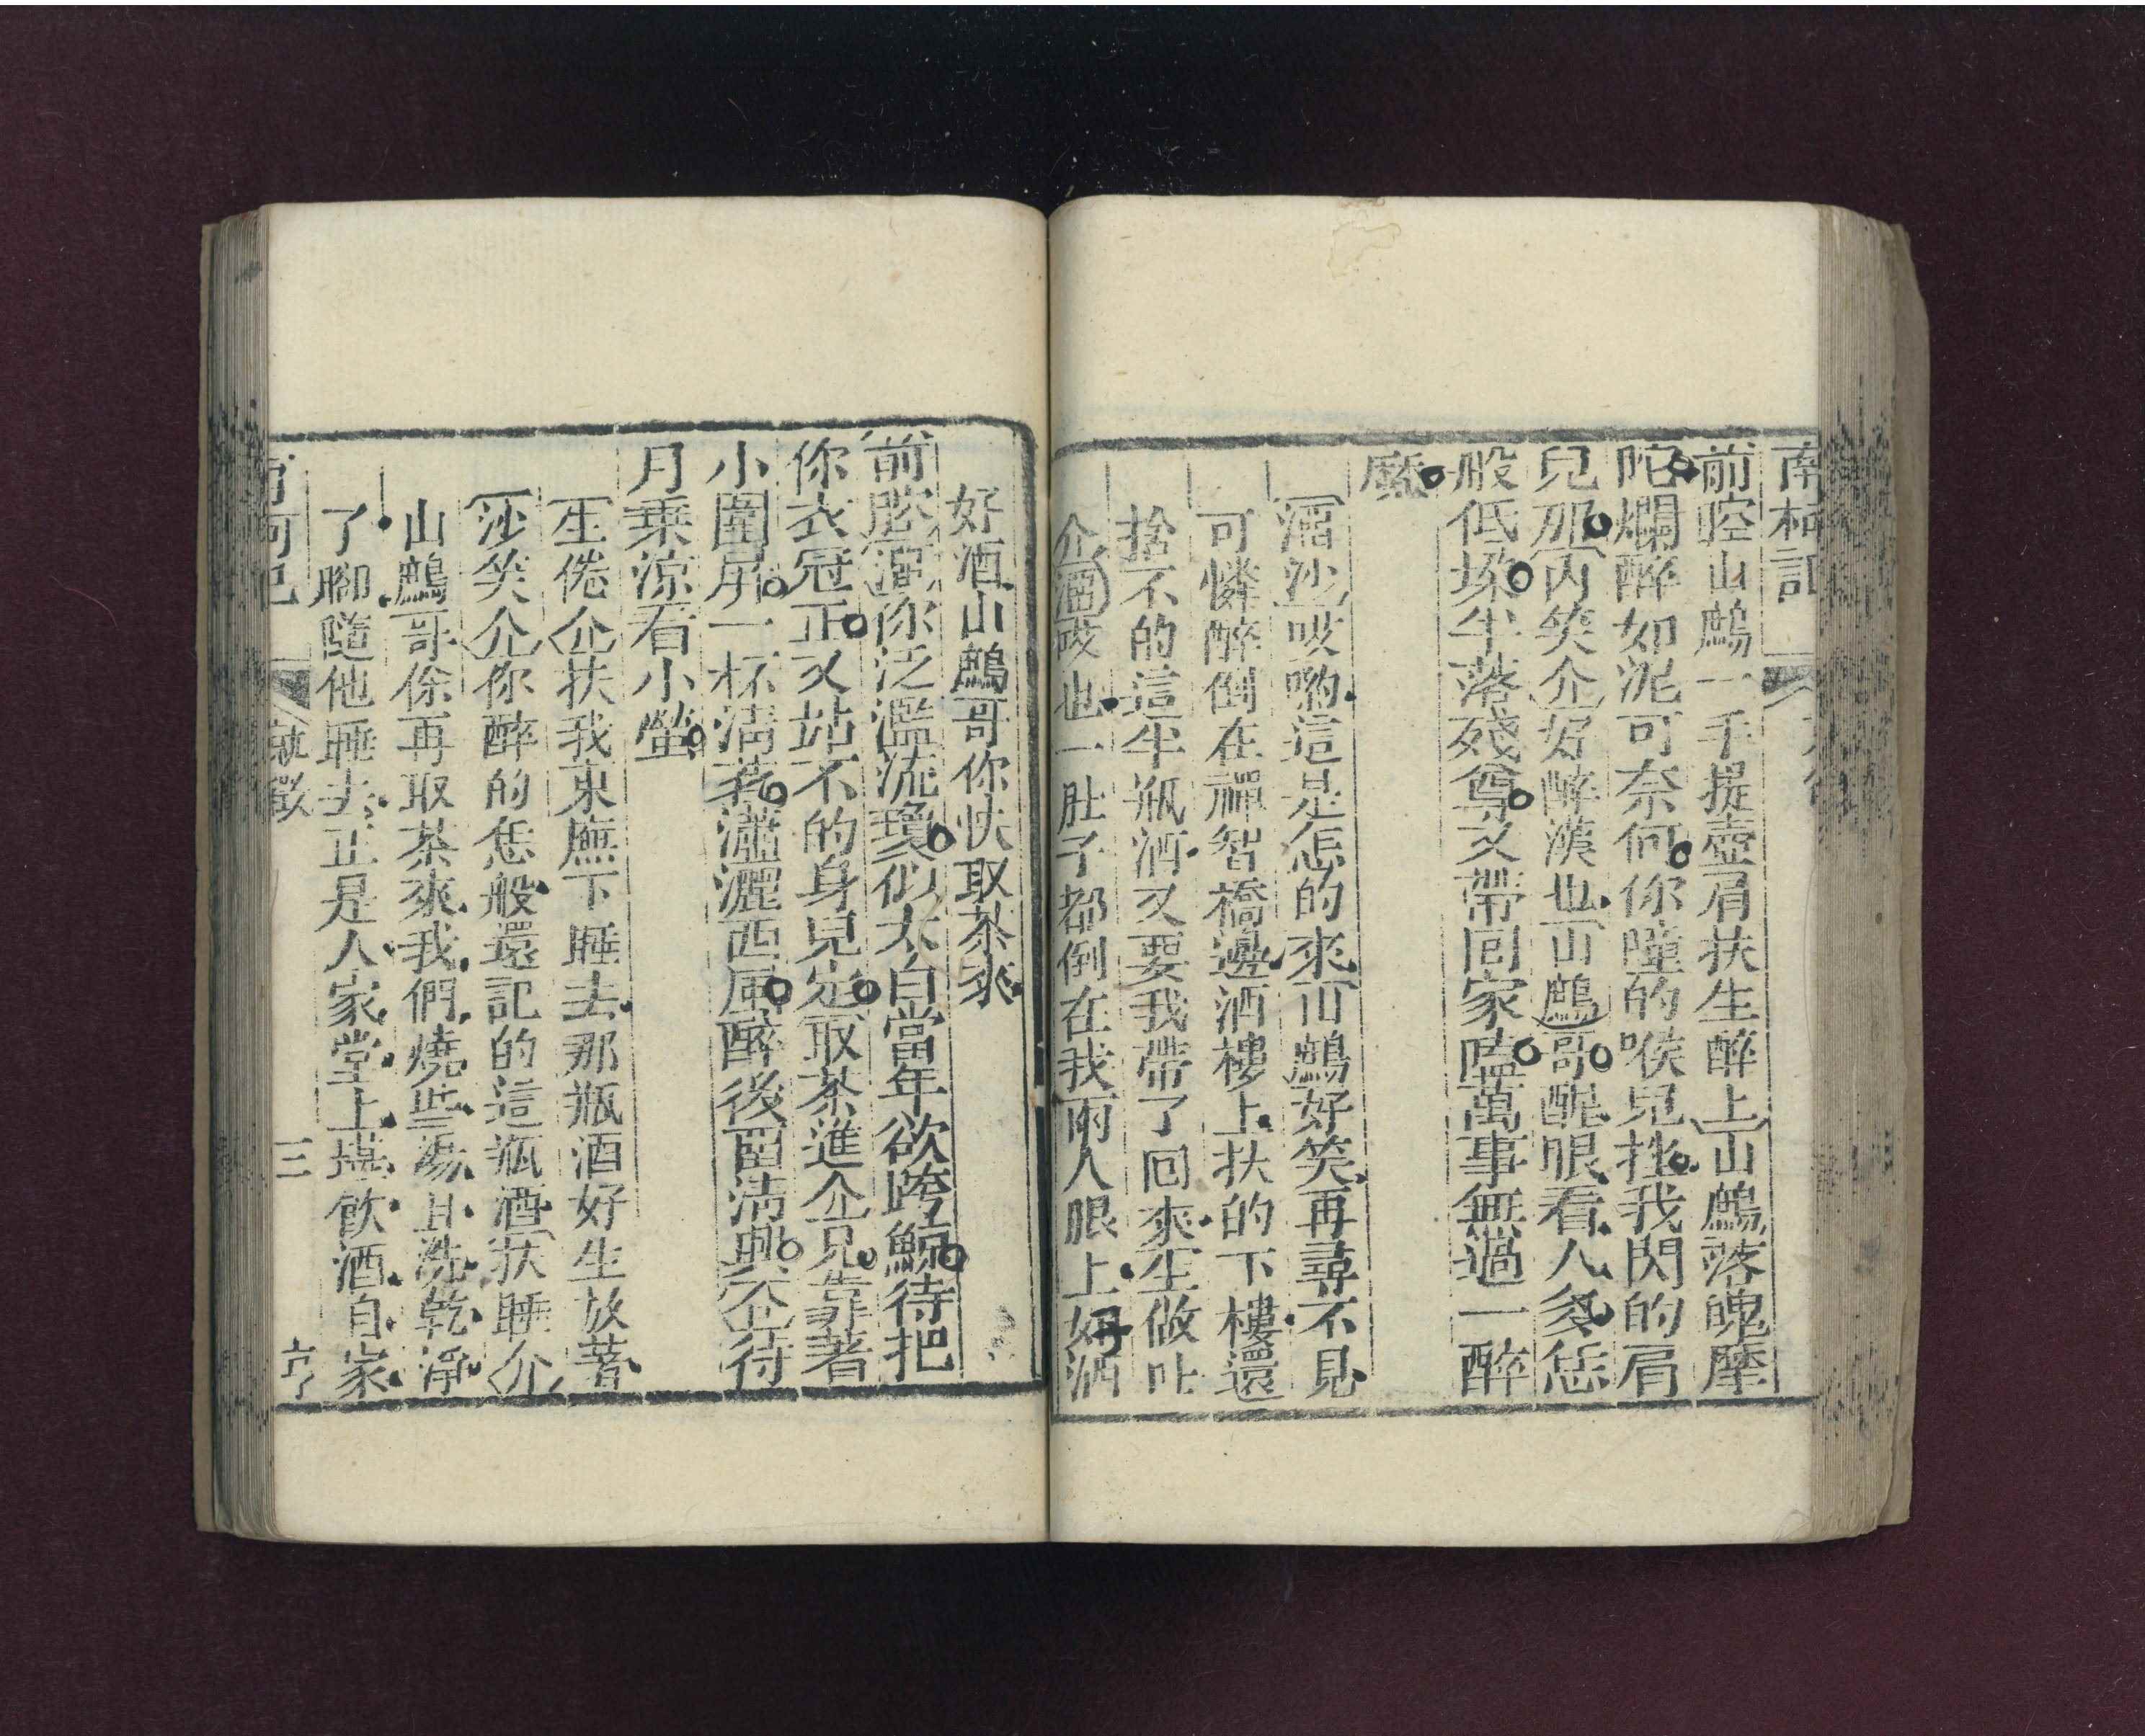 南柯記
前腔山鷓一手提壺肩扶生醉上山鷓落魄摩
陀爛醉如泥可奈何你瞳的喉兒挫我閃的肩
兒那內笑介好醉漢也山鷓哥酡眼看人多恁
般低垛半落殘尊又帶回家嗑萬事無過一醉
麽
溜沙哎喲這是怎的來山鷓好笑再尋不見
可憐醉倒在禪智橋邊酒樓上扶的下樓還
捨不的這半瓶酒又要我帶了回來生做吐
介溜破也一肚子都倒在我兩人眼上好酒
好酒山鷓哥你快取茶來
前腔溜你泛濫流瓊似太白當年欲跨鯨待把
你衣冠正又站不的身兒定取茶進介兄靠著
小圍屏一杯清茗瀟灑西風醉後留清興介待
月乘涼看小螢
生倦介扶我東廡下睡去那瓶酒好生放著
沙笑介你醉的恁般還記的這瓶酒扶睡介
山鷓哥你再取茶來我們燒些湯且洗乾淨
了腳隨他睡去正是人家堂上堪飲酒自家
就徵
三
亨